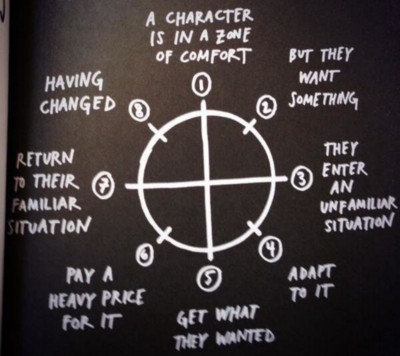 A CHARACTER
IS IN A ZONE
OF COMFORT
1
BUT THEY
WANT
SOMETHING
2
THEY
ENTER
AN
UNFAMILIAR
SITUATION
3
ADAPT
TO IT
4
GET WHAT
THEY WANTED
5
PAY A
HEAVY PRICE
FOR IT
6
RETURN
TO THEIR
FAMILIAR
SITUATION
7
HAVING
CHANGED
8